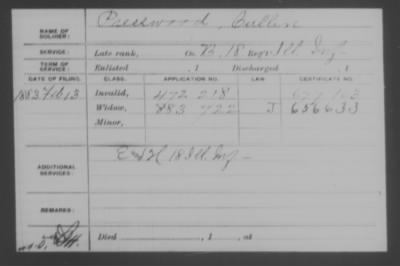 NAME OF SOLDIER: Presswood, Cullen
SERVICE: Late rank, Co. B, 18 Reg't Ill Inf
TERM OF SERVICE: Enlisted , 1 Discharged , 1
DATE OF FILING. CLASS. APPLICATION NO. LAW. CERTIFICATE NO.
1883 Feb 13 Invalid, 472 218
Widow, 883 722 J 656633
Minor,
ADDITIONAL SERVICES: 18 Ill. Inf
REMARKS:
Died , 1 , at